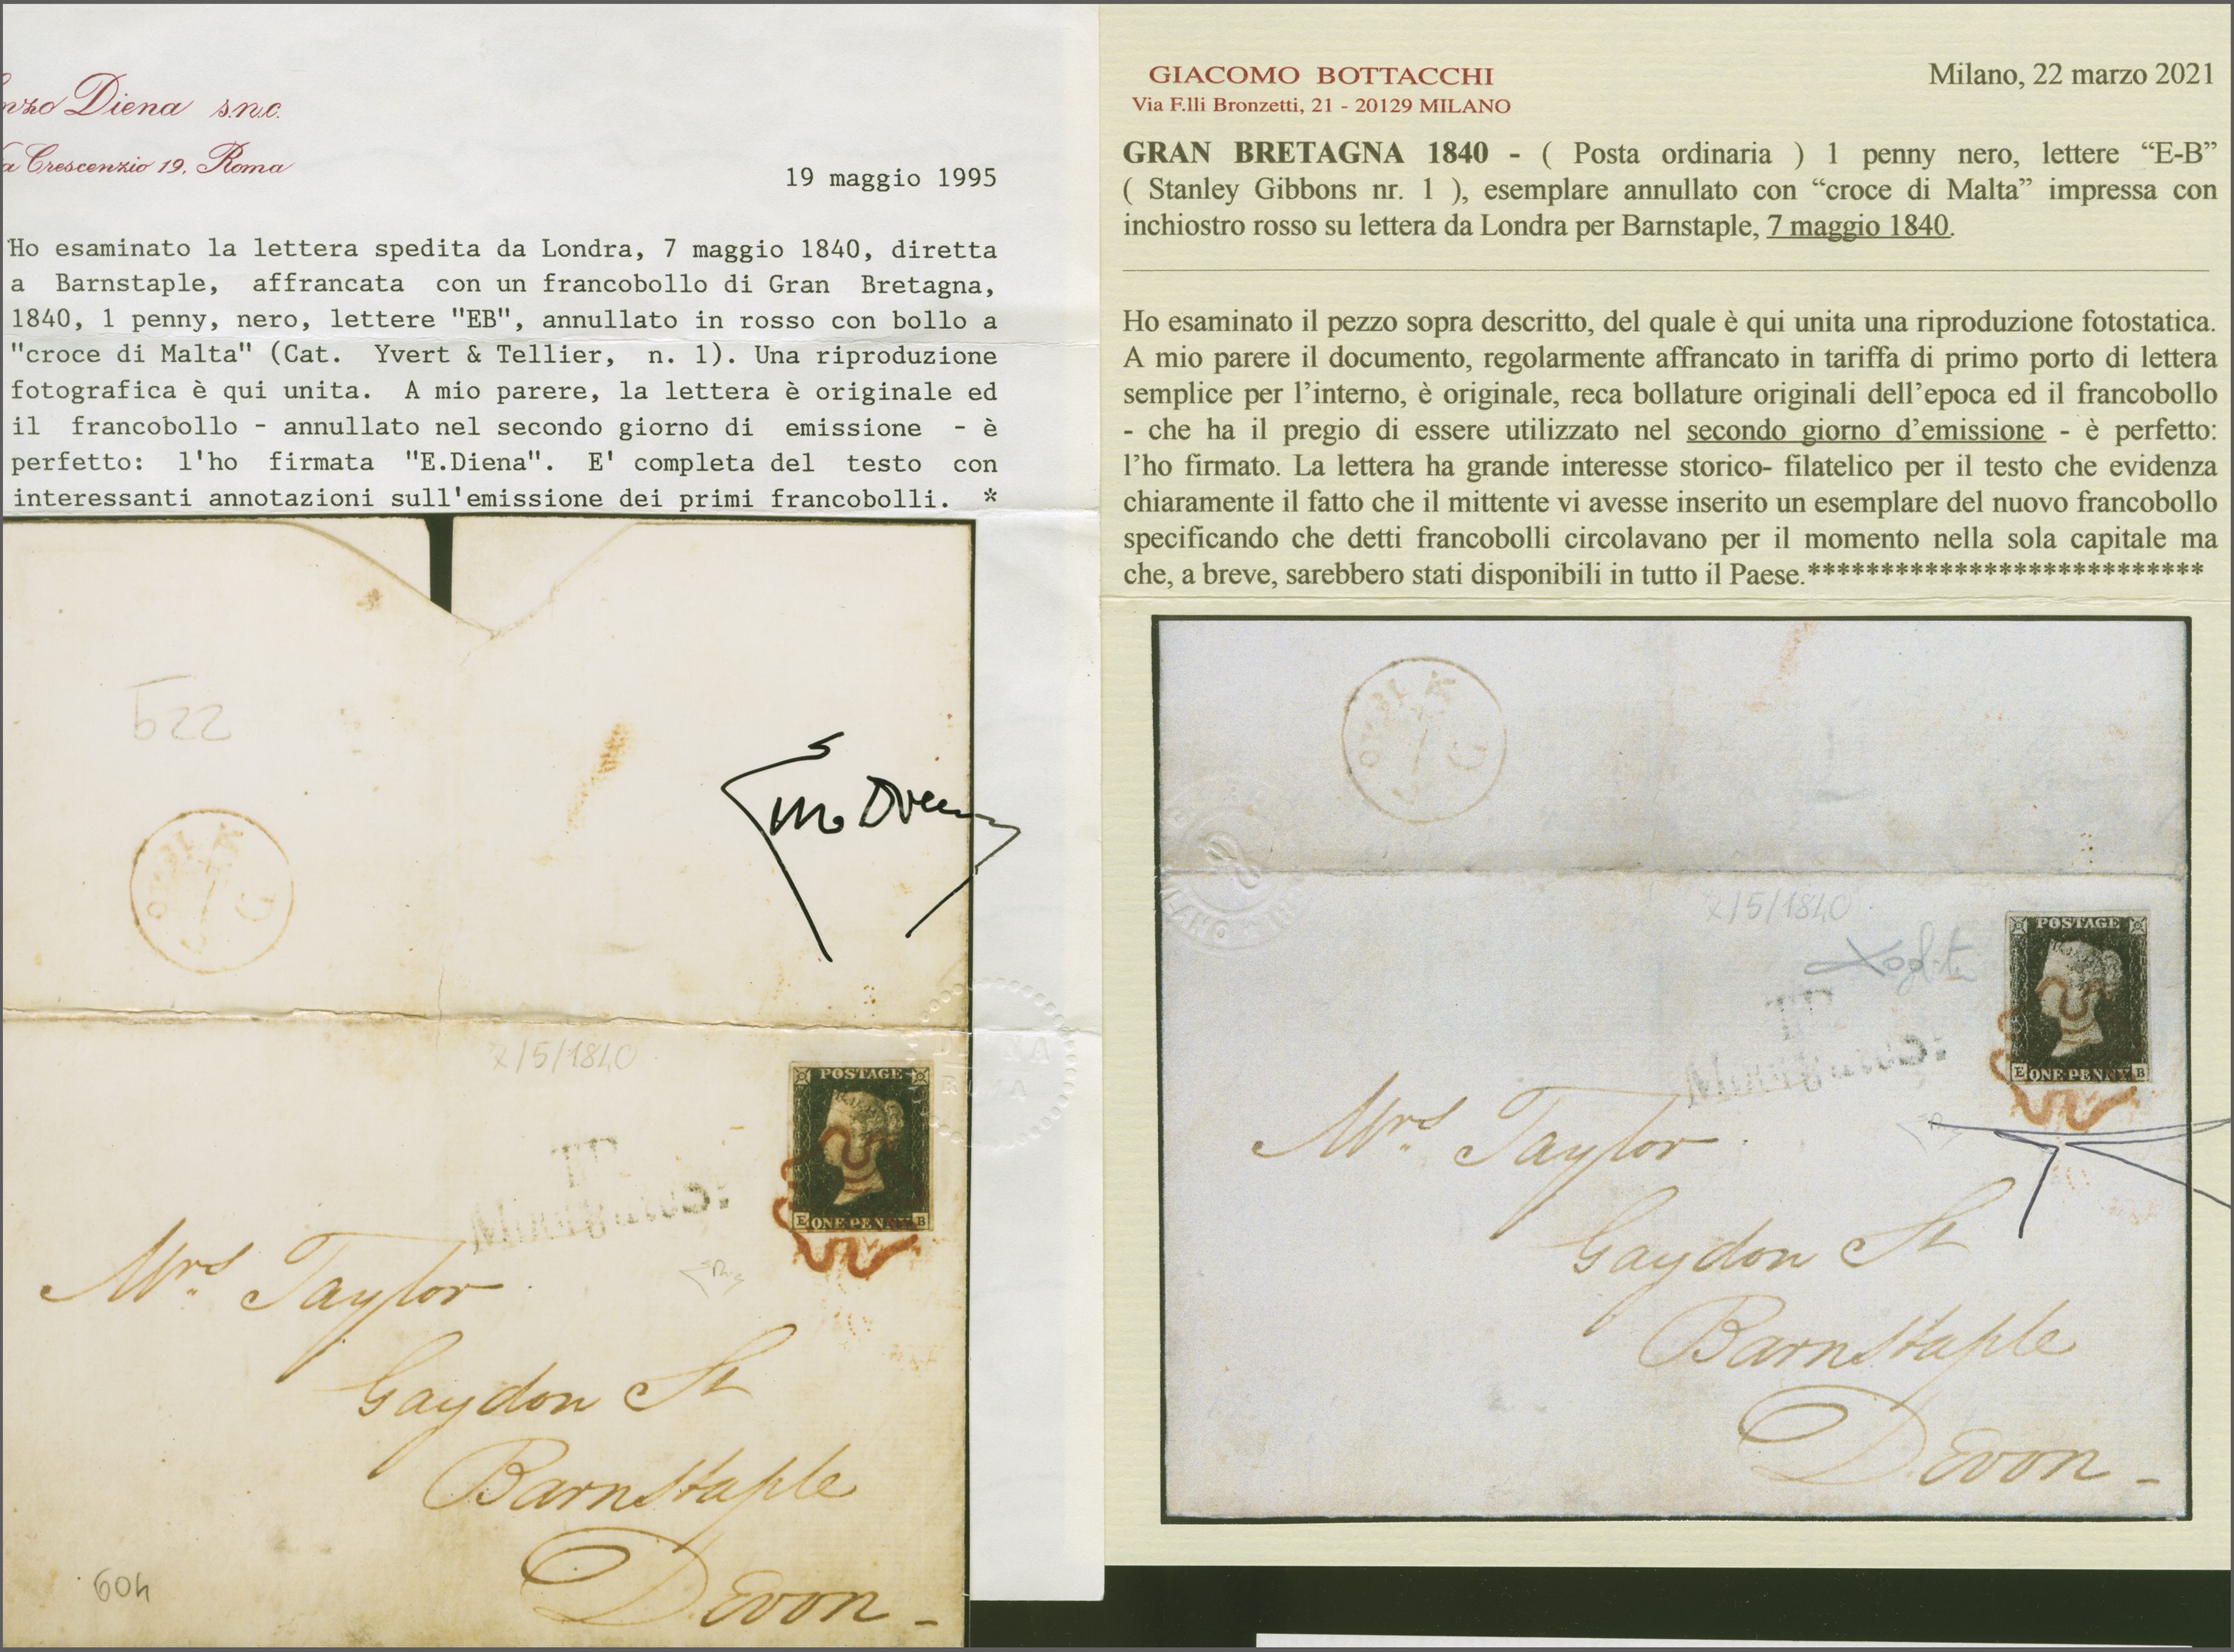 Diena s.n.c.
Crescenzio 19, Roma
19 maggio 1995
Ho esaminato la lettera spedita da Londra, 7 maggio 1840, diretta
a Barnstaple, affrancata con un francobollo di Gran Bretagna,
1840, 1 penny, nero, lettere "EB", annullato in rosso con bollo a
"croce di Malta" (Cat. Yvert & Tellier, n. 1). Una riproduzione
fotografica è qui unita. A mio parere, la lettera è originale ed
il francobollo - annullato nel secondo giorno di emissione - è
perfetto: l'ho firmata "E.Diena". E' completa del testo con
interessanti annotazioni sull'emissione dei primi francobolli. *
522
7/5/1840
POSTAGE
E ONE PENNY B
T
Mrs Taylor
Gaydon St
Barnstaple
Devon -
604
GIACOMO BOTTACCHI
Via F.lli Bronzetti, 21 - 20129 MILANO
Milano, 22 marzo 2021
GRAN BRETAGNA 1840 - ( Posta ordinaria ) 1 penny nero, lettere “E-B”
( Stanley Gibbons nr. 1 ), esemplare annullato con “croce di Malta” impressa con
inchiostro rosso su lettera da Londra per Barnstaple, 7 maggio 1840.
Ho esaminato il pezzo sopra descritto, del quale è qui unita una riproduzione fotostatica.
A mio parere il documento, regolarmente affrancato in tariffa di primo porto di lettera
semplice per l’interno, è originale, reca bollature originali dell’epoca ed il francobollo
- che ha il pregio di essere utilizzato nel secondo giorno d’emissione - è perfetto:
l’ho firmato. La lettera ha grande interesse storico- filatelico per il testo che evidenza
chiaramente il fatto che il mittente vi avesse inserito un esemplare del nuovo francobollo
specificando che detti francobolli circolavano per il momento nella sola capitale ma
che, a breve, sarebbero stati disponibili in tutto il Paese.***************************
7/5/1840
POSTAGE
E ONE PENNY B
T
Mrs Taylor
Gaydon St
Barnstaple
Devon -